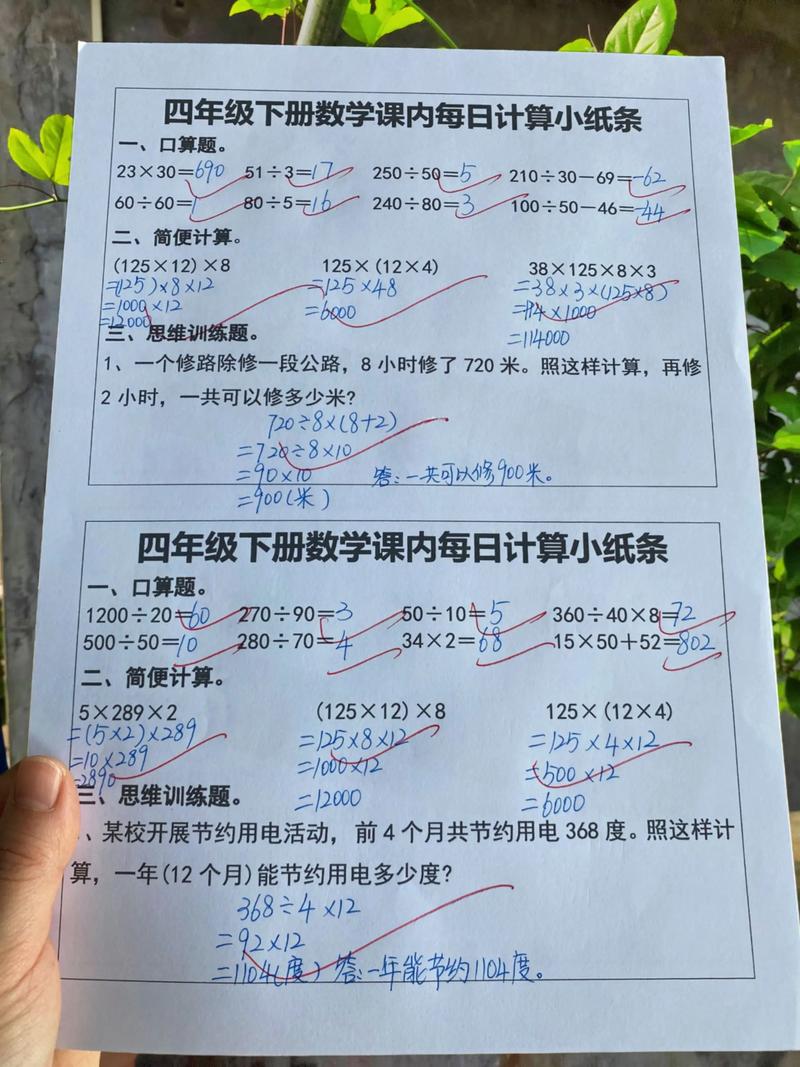 四年级下册数学课内每日计算小纸条
一、口算题。
23×30=690 51÷3=17 250÷50=5 210÷30-69=-62
60÷60=1 80÷5=16 240÷80=3 100÷50-46=-44
二、简便计算。
(125×12)×8 125×(12×4) 38×125×8×3
=(125)×8×12 =125×48 =38×3×(125×8)
=1000×12 =6000 =114×1000
=12000 =114000
三、思维训练题。
1、一个修路除修一段公路，8小时修了720米。照这样计算，再修
2小时，一共可以修多少米?
720÷8×(8+2)
=720÷8×10
=90×10 答:一共可以修900米。
=900(米)
四年级下册数学课内每日计算小纸条
一、口算题。
1200÷20=60 270÷90=3 50÷10=5 360÷40×8=72
500÷50=10 280÷70=4 34×2=68 15×50+52=802
二、简便计算。
5×289×2 (125×12)×8 125×(12×4)
=(5×2)×289 =125×8×12 =125×4×12
=10×289 =1000×12 =500×12
=2890 =12000 =6000
三、思维训练题。
、某校开展节约用电活动，前4个月共节约用电368度。照这样计
算，一年(12个月)能节约用电多少度?
368÷4×12
=92×12
=1104(度) 答:一年能节约1104度。